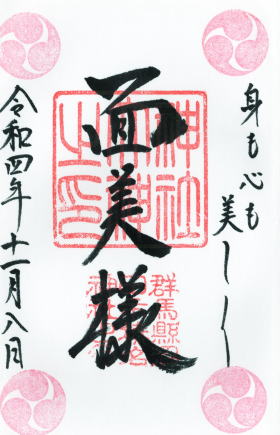 身も心も
美しく
面美様
神社
之印
群馬縣
令和四年十一月八日